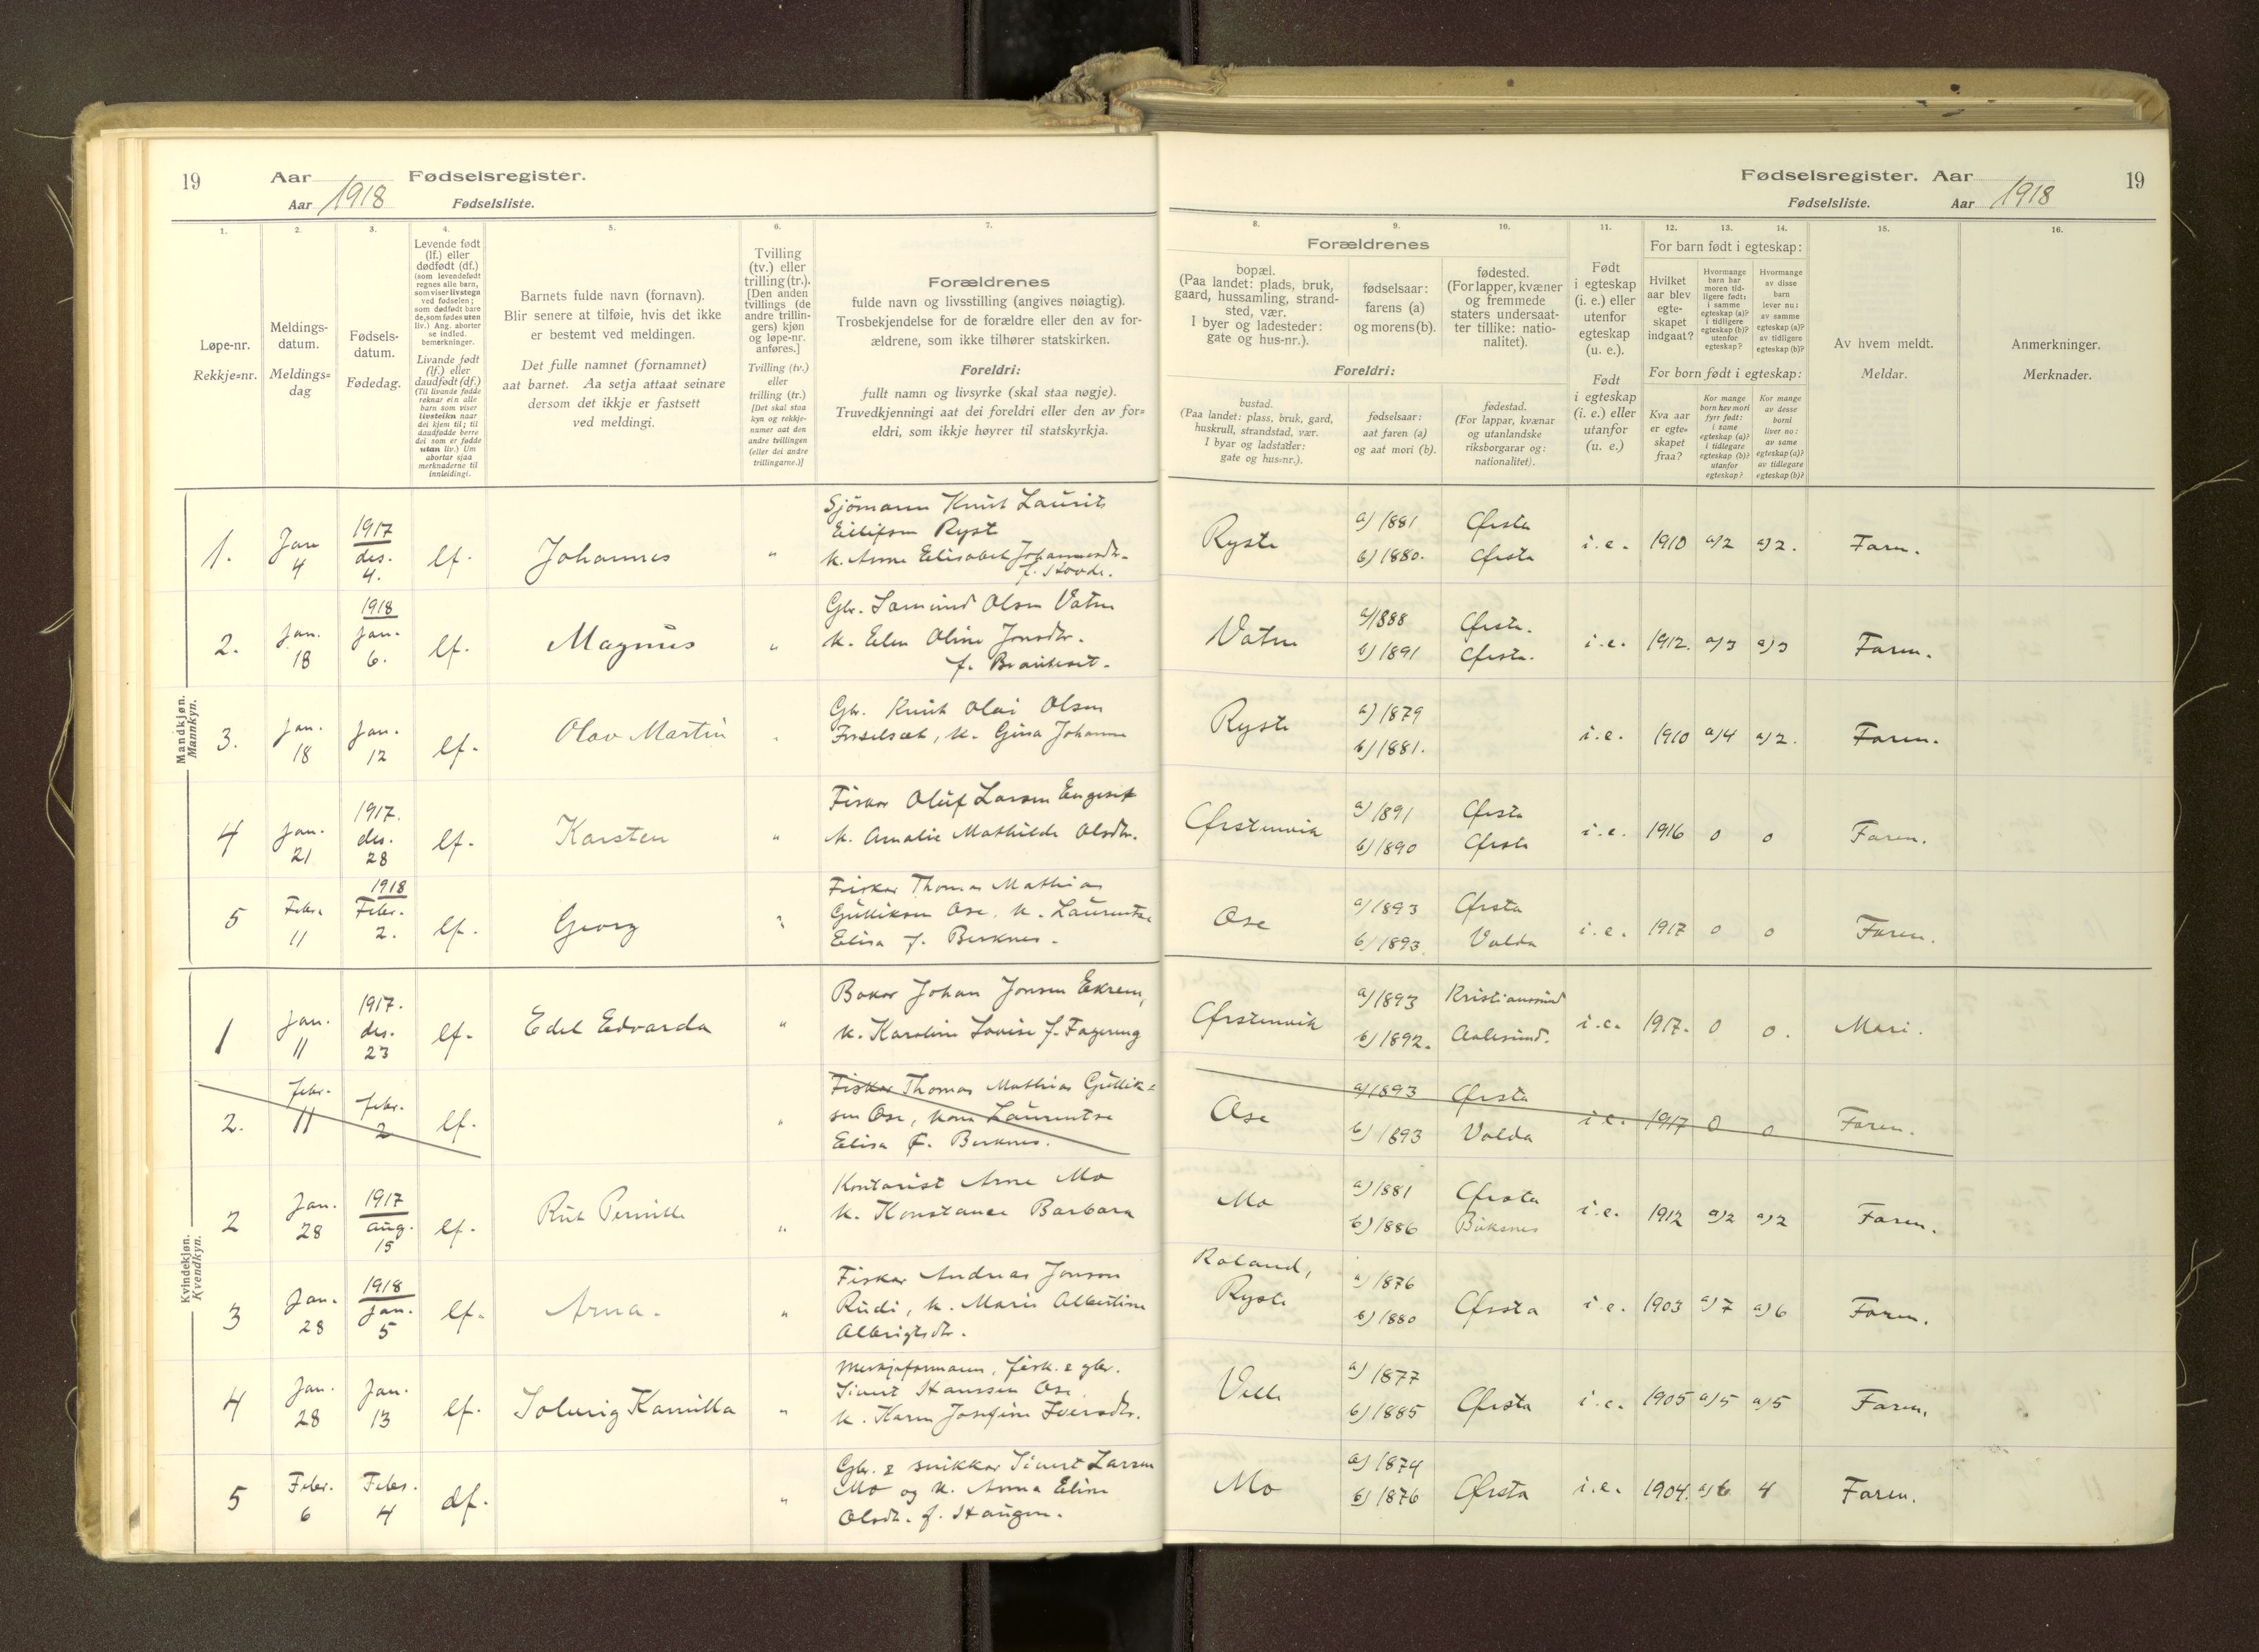 19
Aar
Fødselsregister.
Aar 1918
Fødselsliste.
Fødselsregister. Aar
19
Fødselsliste.
Aar 1918
1.
Løpe-nr.
Rekkje=nr.
2.
Meldings-
datum.
Meldings=
dag
3.
Fødsels-
datum.
Fødedag.
4.
Levende født
(lf.) eller
dødfødt (df.)
(som levendefødt
regnes alle barn,
som viser livstegn
ved fødselen;
som dødfødt bare
de, som fødes uten
liv.) Ang. aborter
se indled.
bemerkninger.
Livande født
(lf.) eller
daudfødt (df.)
(Til livande fødde
reknar ein alle
barn som viser
livsteikn naar
dei kjem til; til
daudfødde berre
dei som er fødde
utan liv.) Um
abortar sjaa
merknaderne til
innleidingi.
5.
Barnets fulde navn (fornavn).
Blir senere at tilføie, hvis det ikke
er bestemt ved meldingen.
Det fulle namnet (fornamnet)
aat barnet. Aa setja attaat seinare
dersom det ikkje er fastsett
ved meldingi.
6.
Tvilling
(tv.) eller
trilling (tr.).
[Den anden
tvillings (de
andre trillin-
gers) kjøn
og løpe-nr.
anføres.]
Tvilling (tv.)
eller
trilling (tr.)
[Det skal staa
kyn og rekkje-
numer aat den
andre tvillingen
(eller dei andre
trillingarne.)]
7.
Forældrenes
fulde navn og livsstilling (angives nøiagtig).
Trosbekjendelse for de forældre eller den av for-
ældrene, som ikke tilhører statskirken.
Foreldri:
fullt namn og livsyrke (skal staa nøgje).
Truvedkjenningi aat dei foreldri eller den av for=
eldri, som ikkje høyrer til statskyrkja.
8.
9.
10.
Forældrenes
bopæl.
(Paa landet: plads, bruk,
gaard, hussamling, strand-
sted, vær.
I byer og ladesteder:
gate og hus-nr.).
fødselsaar:
farens (a)
og morens (b).
fødested.
(For lapper, kvæner
og fremmede
staters undersaat-
ter tillike: natio-
nalitet).
Foreldri:
bustad.
(Paa landet: plass, bruk, gard,
huskrull, strandstad, vær.
I byar og ladstader:
gate og hus-nr.).
fødselsaar:
aat faren (a)
og aat mori (b).
fødestad.
(For lappar, kvænar
og utanlandske
riksborgarar og:
nationalitet).
11.
Født
i egteskap
(i. e.) eller
utenfor
egteskap
(u. e.).
Født
i egteskap
(i. e.) eller
utanfor
(u. e.)
12.
13.
14.
For barn født i egteskap:
Hvilket
aar blev
egte-
skapet
indgaat?
Hvormange
barn har
moren tid-
ligere født:
i samme
egteskap (a)?
i tidligere
egteskap (b)?
utenfor
egteskap?
Hvormange
av disse
barn
lever nu:
av samme
egteskap (a)?
av tidligere
egteskap (b)?
For born født i egteskap:
Kva aar
er egte-
skapet
fraa?
Kor mange
born hev mori
fyrr født:
i same
egteskap (a)?
i tidlegare
egteskap (b)?
utanfor
egteskap?
Kor mange
av desse
borni
liver no:
av same
egteskap (a)?
av tidlegare
egteskap (b)?
15.
Av hvem meldt.
Meldar.
16.
Anmerkninger.
Merknader.
Mandkjøn.
Mannkyn.
1. Jan 4 1917 des. 4. lf. Johannes " Sjömann Knut Laurits
Eilifsen Ryste
k. Anne Elisabet Johannesdr.
f. Hovde.
Ryste a) 1881 b) 1880. Ørsta Ørsta i.e. 1910 a/2 a)2. Faren.
2. Jan. 18 1918 Jan. 6. lf. Magnus " Gbr. Samund Olsen Vatne
k. Elen Oline Jonsdtr.
Vatne a/1888 b) 1891 Ørsta. Ørsta. i.e. 1912. a/3 a)3 Faren.
3. Jan. 18 Jan. 12 lf. Olav Martin Gbr. Knut Olai Olsen
k. Gina Johanne
Ryste a) 1879 b) 1881. i.e. 1910 a/4 a)2. Faren.
4 Jan. 21 1917. des. 28 lf. Karsten " Fisker Oluf Larsen Engeset
k. Amalie Mathilde Olsdtr.
Ørstenvik a) 1891 b) 1890 Ørsta Ørsta i.e. 1916 0 0 Faren.
5 Febr. 11 1918 Febr. 2. lf. Georg " Fisker Thomas Mathias
Gulliksen Ose. k. Laurentse
Elisa f. Berknes.
Ose a) 1893 b) 1893 Ørsta Volda i.e. 1917 0 0 Faren.
Kvindekjøn.
Kvendkyn.
1 Jan. 11 1917. des. 23 lf. Edel Edvarda " Baker Johan Jonsen Ekrem,
k. Karoline Lovise f. Fagereng
Ørstenvik a) 1893 b) 1892. Kristianssund Aalesund. i.e. 1917. 0 0. Mori.
2. febr. 11 febr. 2 lf. " Fisker Thomas Mathias Gullik=
sen Ose, kona Laurentse
Elisa f. Berknes.
Ose a) 1893 b) 1893 Ørsta Volda i.e. 1917 0 0 Faren.
2 Jan. 28 1917 aug. 15 lf. Rut Pernille " Kontorist Arne Mo
k. Konstance Barbara
Mo a) 1881 b) 1886 Ørsta Buksnes i.e. 1912 a)2 a)2 Faren.
3 Jan. 28 1918 Jan. 5 lf. Arna. " Fisker Andreas Jonson
Rudi, k. Marie Albertine
Albrigtsdtr.
Roland,
Ryste a) 1876 b) 1880 Ørsta i.e. 1903 a)7 a)6 Faren.
4 Jan. 28 Jan. 13 lf. Solveig Kamilla " fisk. & gbr.
Sivert Hanssen Ose.
k. Karen Josefine Iversdtr.
Velle a) 1877 b) 1885 Ørsta i.e. 1905 a/5 a)5 Faren.
5 Febr. 6 Febr. 4 df. " Gbr. & snikkar Sivert Larsen
Mo og k. Anna Eline
Olsdtr. f. Haugen.
Mo a) 1874 b) 1876 Ørsta i.e. 1904. a)6 4 Faren.